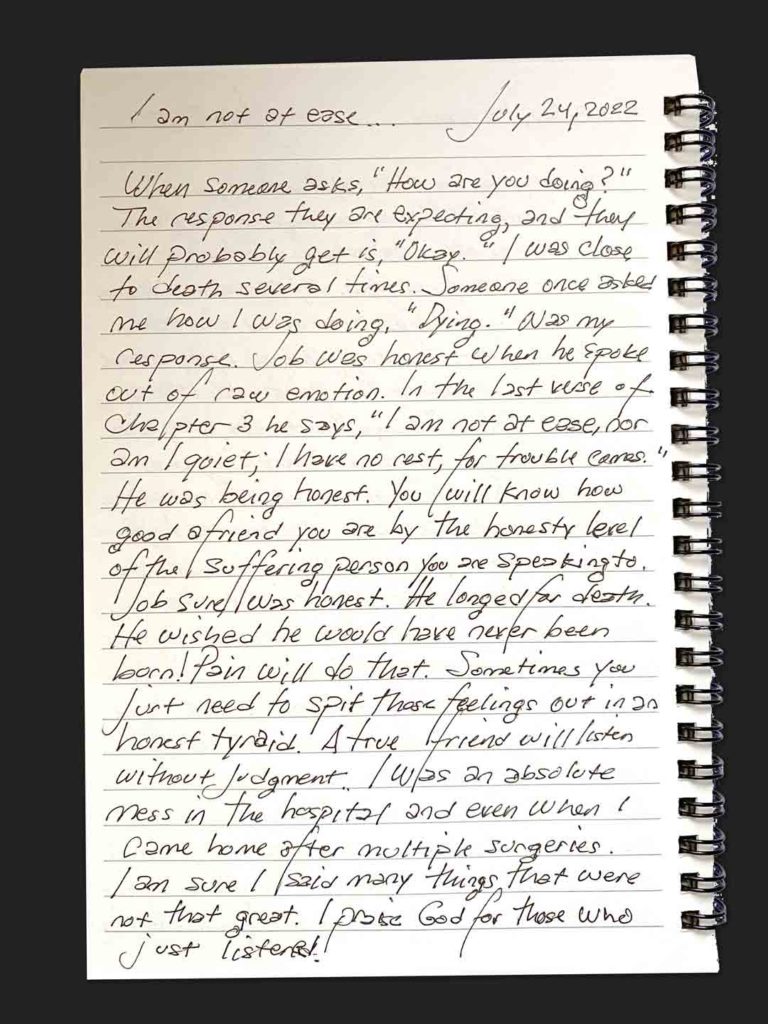 I am not at ease... July 24, 2022
When someone asks, "How are you doing?"
The response they are expecting, and they
will probably get is, "Okay." I was close
to death several times. Someone once asked
me how I was doing, "Dying." Was my
response. Job was honest when he spoke
out of raw emotion. In the last verse of
Chapter 3 he says, "I am not at ease, nor
am I quiet; I have no rest, for trouble comes."
He was being honest. You will know how
good a friend you are by the honesty level
of the suffering person you are speaking to.
Job sure was honest. He longed for death.
He wished he would have never been
born! Pain will do that. Sometimes you
just need to spit those feelings out in an
honest tyraid. A true friend will listen
without judgment. I was an absolute
mess in the hospital and even when I
came home after multiple surgeries.
I am sure I said many things that were
not that great. I praise God for those who
just listened!